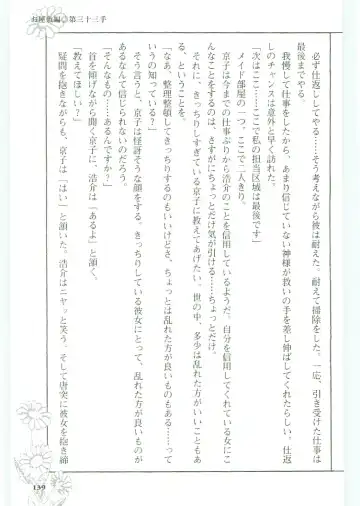 第三十三手
必ず仕返ししてやる……そう考えながら彼は耐えた。耐えて掃除をした。一応、引き受けた仕事は
最後までやる。
我慢して仕事をしたから、あまり信じていない神様が救いの手を差し伸ばしてくれたらしい。仕返
しのチャンスは意外と早く訪れた。
「次はここ……ここで私の担当区域は最後です」
メイド部屋の一つ。ここで二人きり。
京子は今までの仕事ぶりから浩介のことを信用しているようだ。自分を信用してくれている女にこ
んなことをするのは、さすがにちょっとだけ気が引ける……ちょっとだけ。
それに、きっちりしすぎている京子に教えてあげたい。世の中、多少は乱れた方がいいこともあ
る、ということを。
「なあ、整理整頓してきっちりするのもいいけどさ、ちょっとは乱れた方が良いものもある……って
いうの知っている？」
そう言うと、京子は怪訝そうな顔をする。きっちりしている彼女にとって、乱れた方が良いものが
あるなんて信じられないのだろう。
「そんなもの……あるんですか？」
首を傾げながら聞く京子に、浩介は「あるよ」と頷く。
「教えてほしい？」
疑問を抱きながらも、京子は「はい」と頷いた。浩介はニヤッと笑う。そして唐突に彼女を抱き締
139